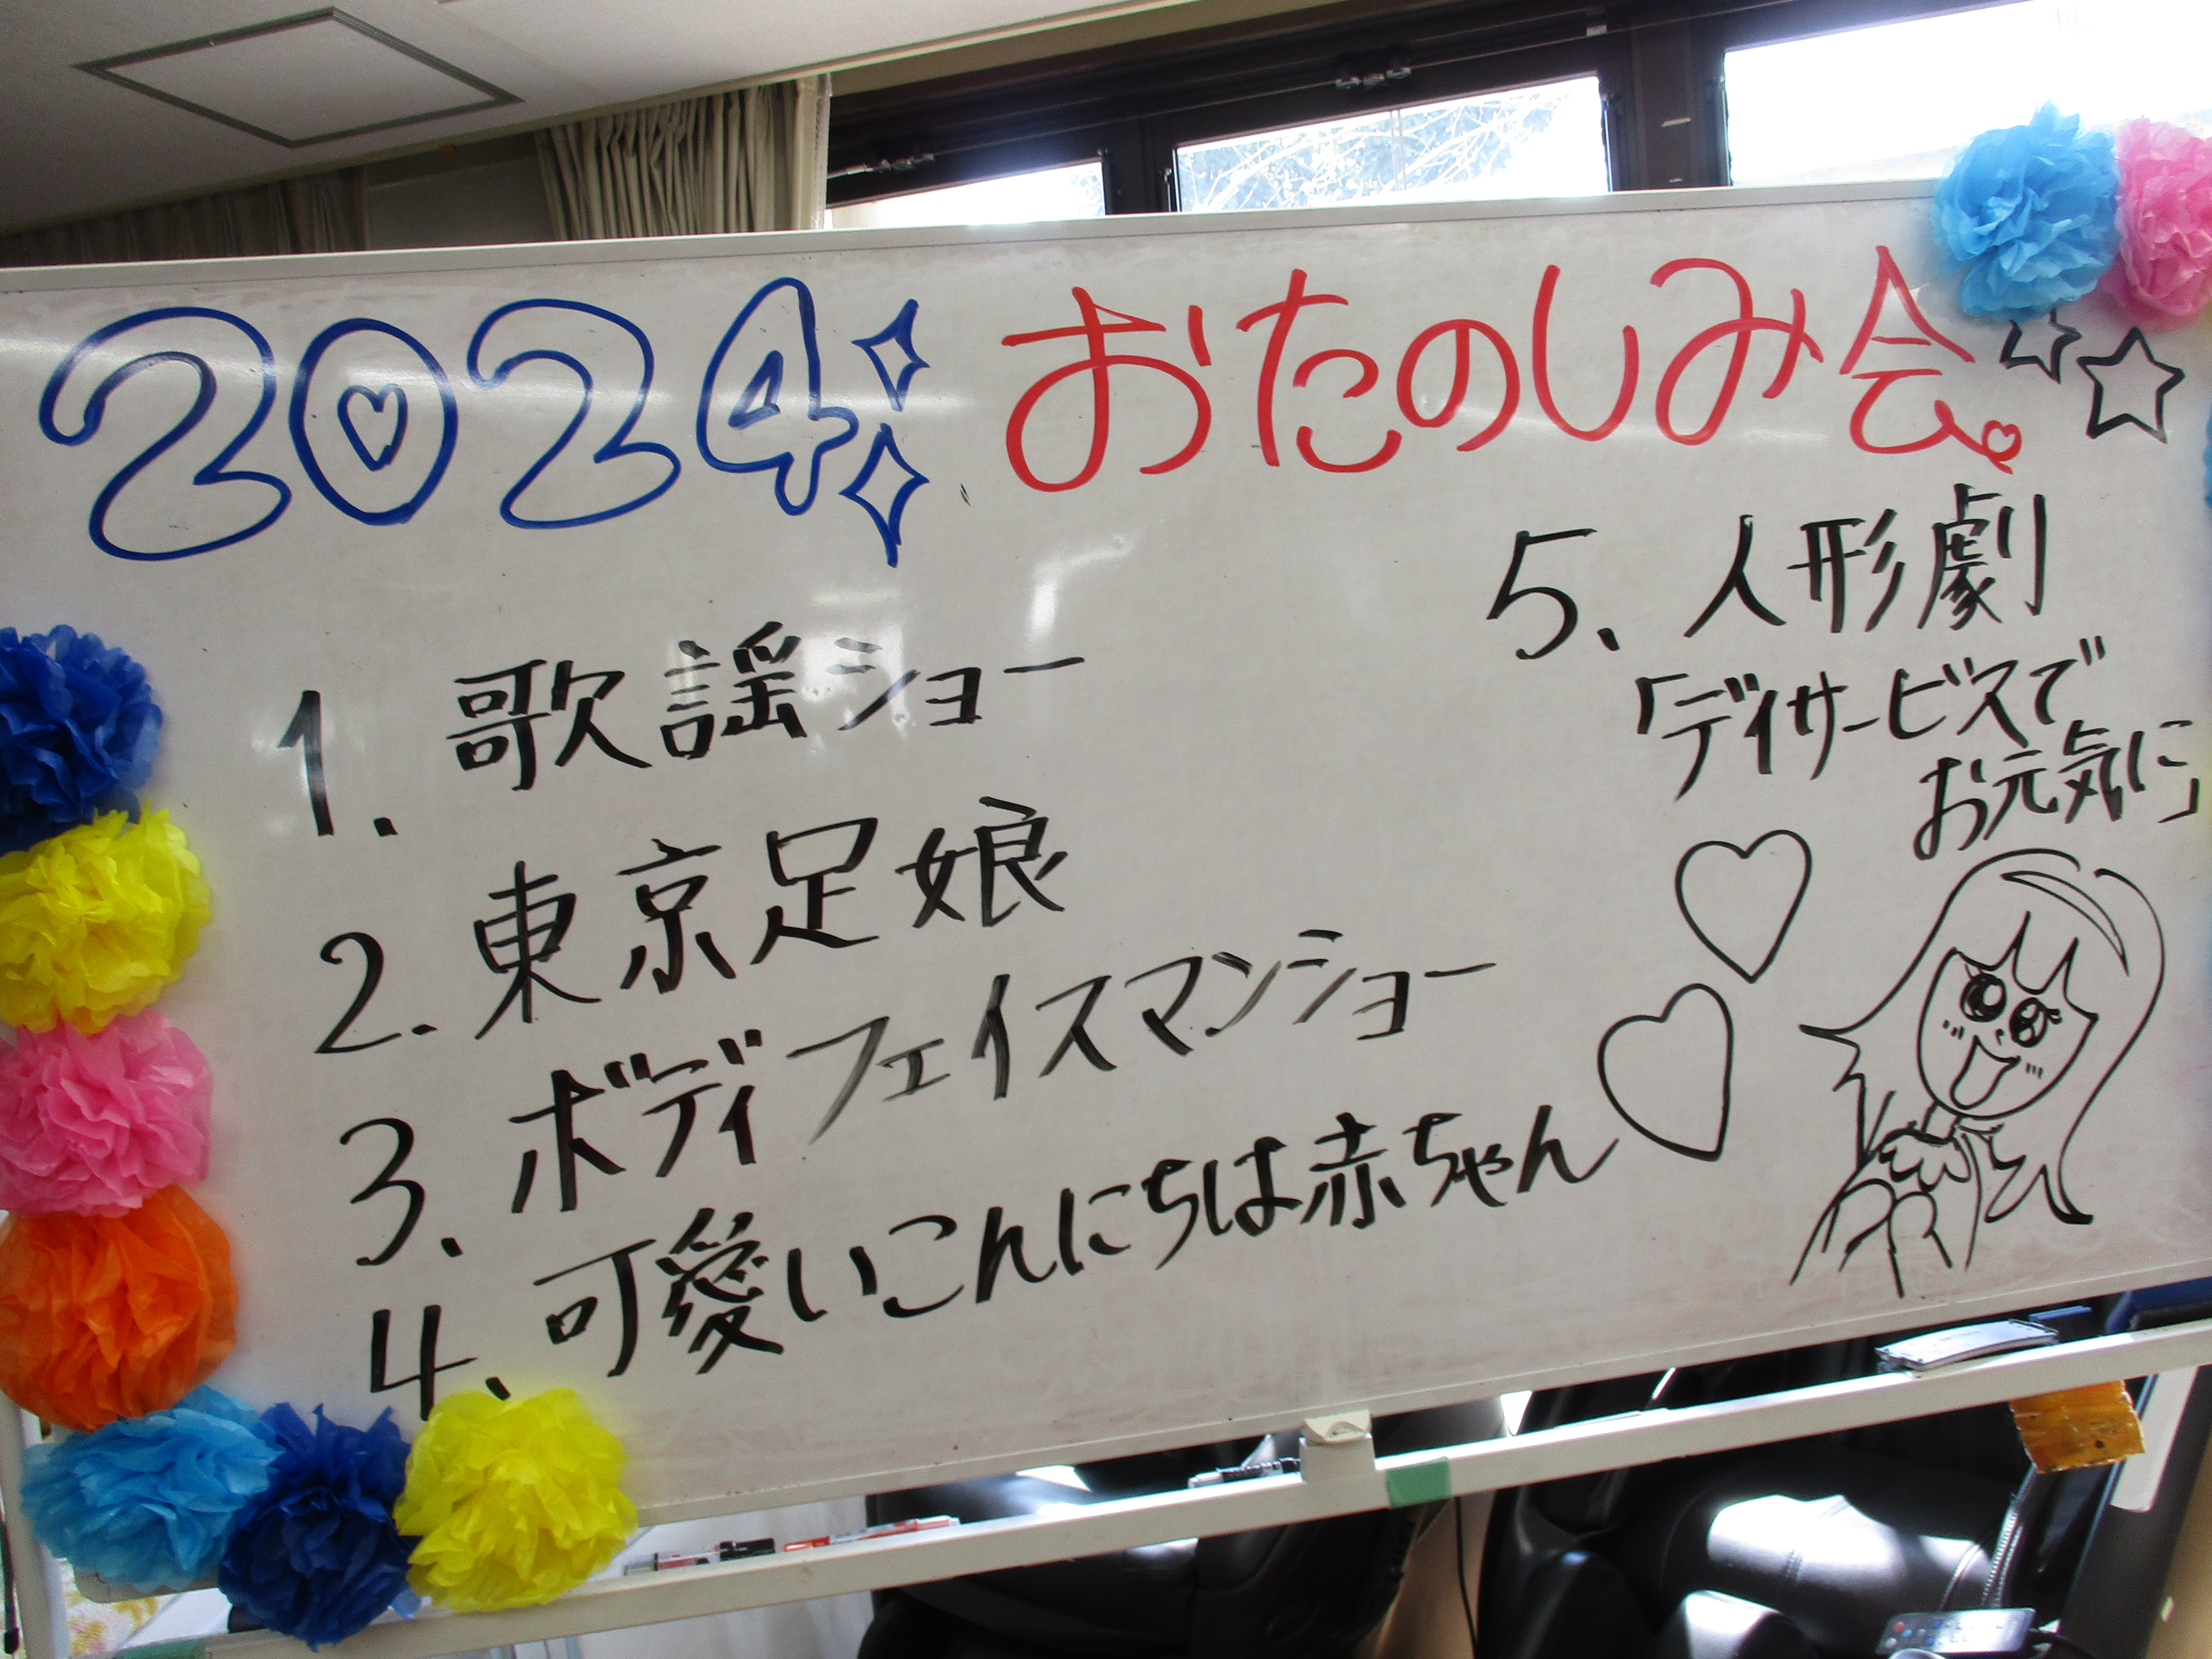 2024 おたのしみ会
1. 歌謡ショー
2. 東京足娘
3. ボディフェイスマンショー
4. 可愛いこんにちは赤ちゃん
5. 人形劇
「デイサービスで
お元気に」